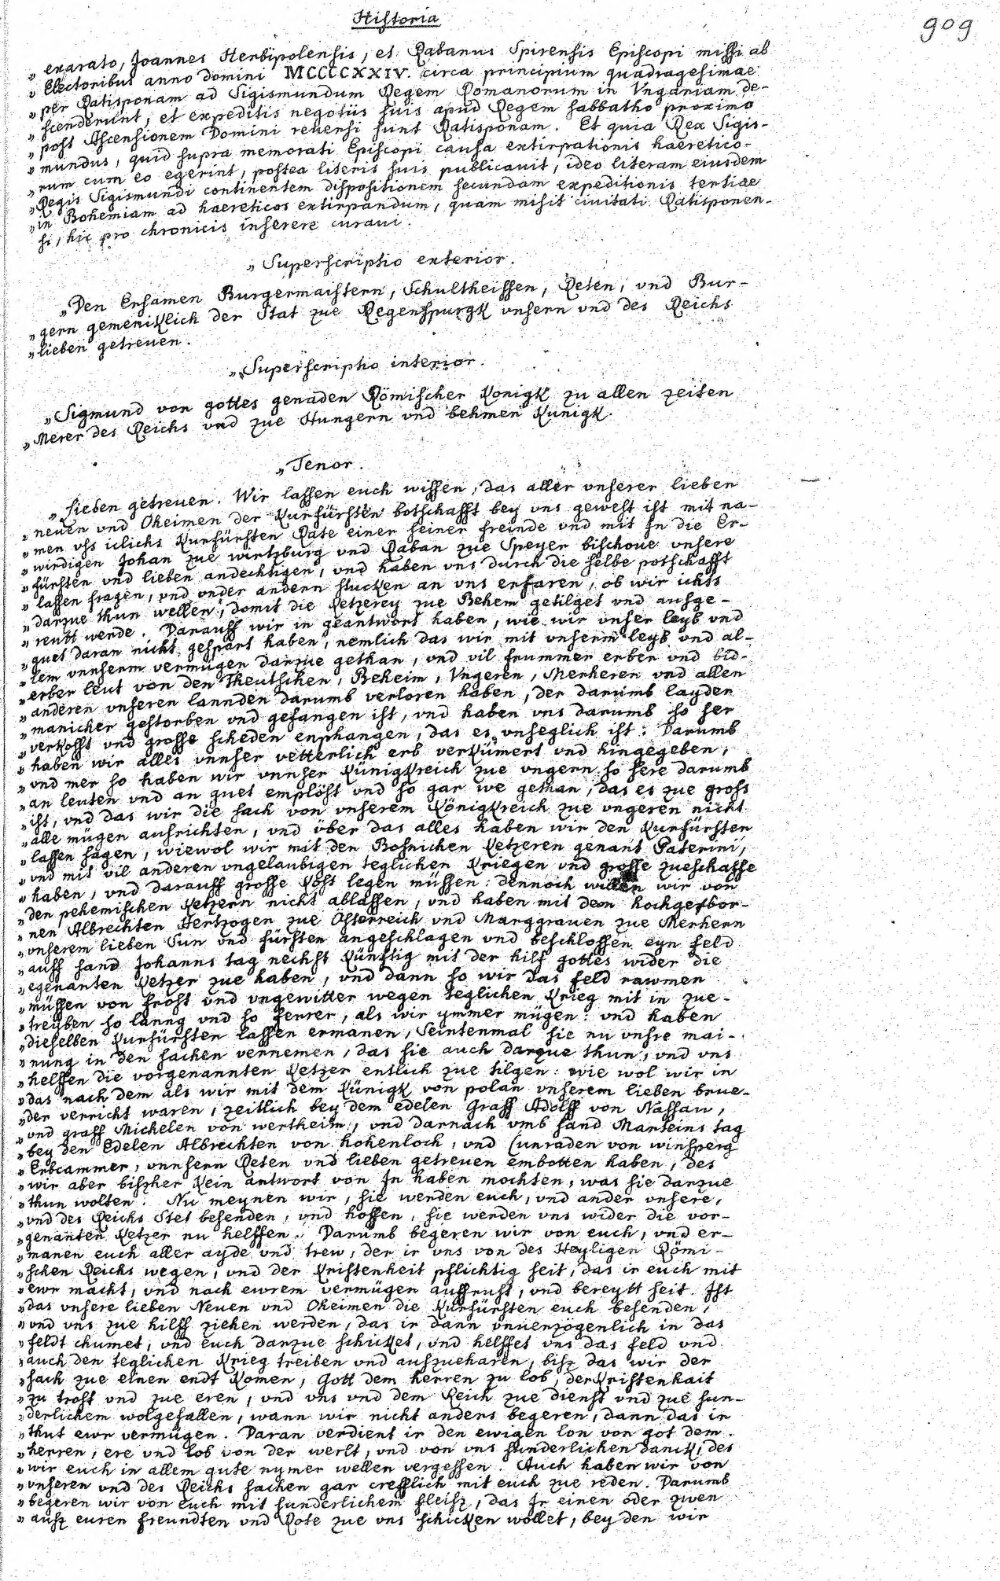 Historia
909
„ exarato, Joannes Herbipolensis, et Rabanus Spirensis Episcopi missi ab
„ Electoribus anno Domini MCCCCXXIV. circa principium quadragesimae
„ per Ratisponam ad Sigismundum Regem Romanorum in Vngariam de-
„ scenderunt, et expeditis negotiis suis apud Regem sabbatho proximo
„ post Ascensionem Domini reuersi sunt Ratisponam. Et quia Rex Sigis-
„ mundus, quid supra memorati Episcopi causa extirpationis haeretico-
„ rum cum eo egerint, postea literis suis publicauit, ideo literam eiusdem
„ Regis Sigismundi continentem dispositionem secundam expeditionis tertiae
„ in Bohemiam ad haereticos extirpandum, quam misit ciuitati Ratisponen-
si, hic pro chronicis inserere curaui.
„ Superscriptio exterior.
„ Den Ersamen Burgermaistern, Schultheissen, Reten, vnd Bur-
„ gern gemeniklich der Stat zue Regenspurgk vnsern vnd des Reichs
„ lieben getreuen.
„ Superscriptio interior.
„ Sigmund von gottes genaden Römischer Konigk zu allen zeiten
„ Merer des Reichs vnd zue Hungern vnd behmen Kunigk.
„ Tenor.
„ Lieben getreuen. Wir lassen euch wissen, das aller vnserer lieben
„ neuen vnd Oheimen der Kurfürsten botschafft bey vns gewest ist mit na-
„ men vss iclichs Kurfürsten Rate einer seiner freinde vnd mit In die Er-
„ wirdigen Johan zue wirtzburg vnd Raban zue Speyer bischoue vnsere
„ fürsten vnd lieben andechtigen, vnd haben vns durch die selbe potschafft
„ lassen fragen, vnd vnder andern stucken an vns erfaren, ob wir ichts
„ darzue thun wellen, domit die Ketzerey zue Behem getilget vnd ausge-
„ reutt werde. Darauff wir in geantwort haben, wie wir vnser leyb vnd
„ guet daran nicht gespart haben, nemlich das wir mit vnserm leyb vnd al-
„ lem vnnserm vermügen darzue gethan, vnd vil frummer erben vnd bid-
„ erber leut von den Theutschen, Beheim, Vngeren, Merheren vnd allen
„ anderen vnseren lannden darumb verloren haben, der darumb layder
„ manicher gestorben vnd gefangen ist, vnd haben vns darumb so ser
„ verkosst vnd grosse scheden enphangen, das es vnseglich ist. Darumb
„ haben wir alles vnnser vetterlich erb verkümert vnd hingegeben,
„ vnd mer so haben wir vnnser Künigkreich zue vngern so sere darumb
„ an leuten vnd an guet emplöst vnd so gar we gethan, das es zue gross
„ ist, vnd das wir die sach von vnserem Königkreich zue vngeren nicht
„ alle mügen ausrichten, vnd über das alles haben wir den Kurfürsten
„ lassen sagen, wiewol wir mit den Bosnichen Ketzeren genant Paterini,
„ vnd mit vil anderen vngelaubigen teglichen Kriegen vnd grosse zueschaffe
„ haben, vnd darauff grosse Kost legen müssen: dennoch willen wir von
„ den pehemischen Ketzern nicht ablassen, vnd haben mit dem hochgebor-
„ nen Albrechten Hertzogen zue Österreich vnd Marggrauen zue Merhern
„ vnserem lieben Sun vnd fürsten angeschlagen vnd beschlossen eyn feld
„ auff sand Johanns tag nechst künftig mit der hilf gottes wider die
„ egenanten Ketzer zue haben, vnd dann so wir das feld rawmen
„ müssen von frost vnd vngewitter wegen teglichen Krieg mit in zue-
„ treyben so lanng vnd so ferrer, als wir ymmer mügen: vnd haben
„ dieselben Kurfürsten lassen ermanen, Seintenmal sie nu vnsre mai-
„ nung in den sachen vernemen, das sie auch darzue thun, vnd vns
„ helffen die vorgenannten Ketzer entlich zue tilgen: wie wol wir in
„ das nach dem als wir mit dem Künigk von polan vnserem lieben brue-
„ der verricht waren, zeitlich bey dem edelen Graff Adolff von Nassaw,
„ vnd graff Michelen von wertheim, vnd darnach vmb sand Marteins tag
„ bey den Edelen Albrechten von hohenloch, vnd Cunraden von winsperg
„ Erbcammer, vnnsern Reten vnd lieben getreuen embotten haben, des
„ wir aber bisher kein antwort von In haben mochten, was sie darzue
„ thun wolten. Nu meynen wir, sie werden euch, vnd ander vnsere,
„ vnd des Reichs Stet besenden, vnd hoffen, sie werden vns wider die vor-
„ genanten Ketzer nu helffen. Darumb begeren wir von euch, vnd er-
„ manen euch aller ayde vnd trew, der ir vns von des Heyligen Römi-
„ schen Reichs wegen, vnd der Kristenheit pflichtig seit, das ir euch mit
„ ewr macht, vnd nach ewrem vermügen auffrust, vnd bereytt seit. Ist
„ das vnsere lieben Neuen vnd Oheimen die Kurfürsten euch besenden,
„ vnd vns zue hilff ziehen werden, das ir dann vnuerzogenlich in das
„ feldt chumet, vnd euch darzue schicket, vnd helffet vns das feld vnd
„ auch den teglichen Krieg treiben vnd auszueharen, bisz das wir der
„ sach zue einen endt komen, Gott dem herren zu lob, der Kristenhait
„ zu trost vnd zue eren, vnd vns vnd dem Reich zue dienst vnd zue sun-
„ derlichem wolgefallen, wann wir nicht anders begeren, dann das ir
„ thut ewr vermügen. Daran verdient ir den ewigen lon von got dem
„ herren, ere vnd lob von der werlt, vnd von vns sunderlichen danck, des
„ wir euch in allem gute nymer wellen vergessen. Auch haben wir von
„ vnseren vnd des Reichs sachen gar trefflich mit euch zue reden. Darumb
„ begeren wir von euch mit sunderlichem fleisz, das Ir einen oder zwen
„ ausz euren freundten vnd Rote zue vns schicken wollet, bey den wir